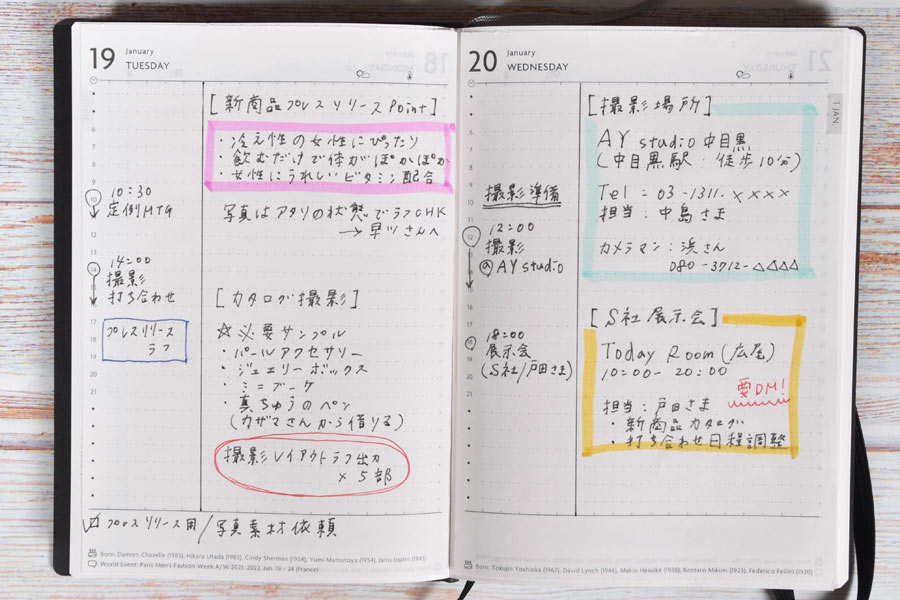 19
January
TUESDAY
10:30
定例MTG
14:00
撮影
打ち合わせ
プレスリリース
ラフ
[新商品プレスリリースPoint]
・冷え性の女性にぴったり
・飲むだけで体がぽかぽか
・女性にうれしいビタミン配合
写真はアタリの状態でラフCHK
→早川さんへ
[カタログ撮影]
☆必要サンプル
・パールアクセサリー
・ジュエリーボックス
・ミニブーケ
・真ちゅうのペン
(カザマさんから借りる)
撮影レイアウトラフ出力
×5部
プレスリリース用/写真素材依頼
Born: Damien Chazelle (1985), Hikaru Utada (1983), Cindy Sherman (1954), Yumi Matsutoya (1954), Janis Joplin (1943)
World Event: Paris Men's Fashion Week A/W 2021-2022, Jan. 19 - 24 (France)
20
January
WEDNESDAY
1 JAN
撮影準備
12:00
撮影
@AY studio
18:00
展示会
(S社/戸田さま)
[撮影場所]
AY studio 中目黒
(中目黒駅・徒歩10分)
Tel:03-1311-××××
担当:中島さま
カメラマン:浜さん
080-3712-△△△△
[S社展示会]
Today Room(広尾)
10:00-20:00
要DM!
担当:戸田さま
・新商品カタログ
・打ち合わせ日程調整
Born: Tokujin Yoshioka (1967), David Lynch (1946), Makio Hasuike (1938), Rentaro Mikuni (1923), Federico Fellini (1920)